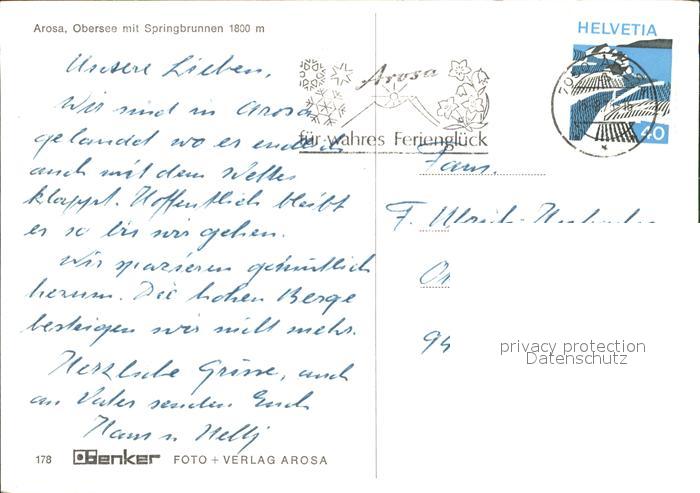 Arosa, Obersee mit Springbrunnen 1800 m
Unsere Lieben,
Wir sind in Arosa
gelandet wo es endlich
auch mit dem Wetter
klappt. Hoffentlich bleibt
es so bis wir gehen.
Wir spazieren gemütlich
herum. Die hohen Berge
besteigen wir nicht mehr.
Herzliche Grüsse, auch
an Vater senden Euch
Hans u. Nelly
178 Benker FOTO + VERLAG AROSA
Arosa
für wahres Ferienglück
HELVETIA
40
Fam.
F. Ulrich-
94
privacy protection
Datenschutz